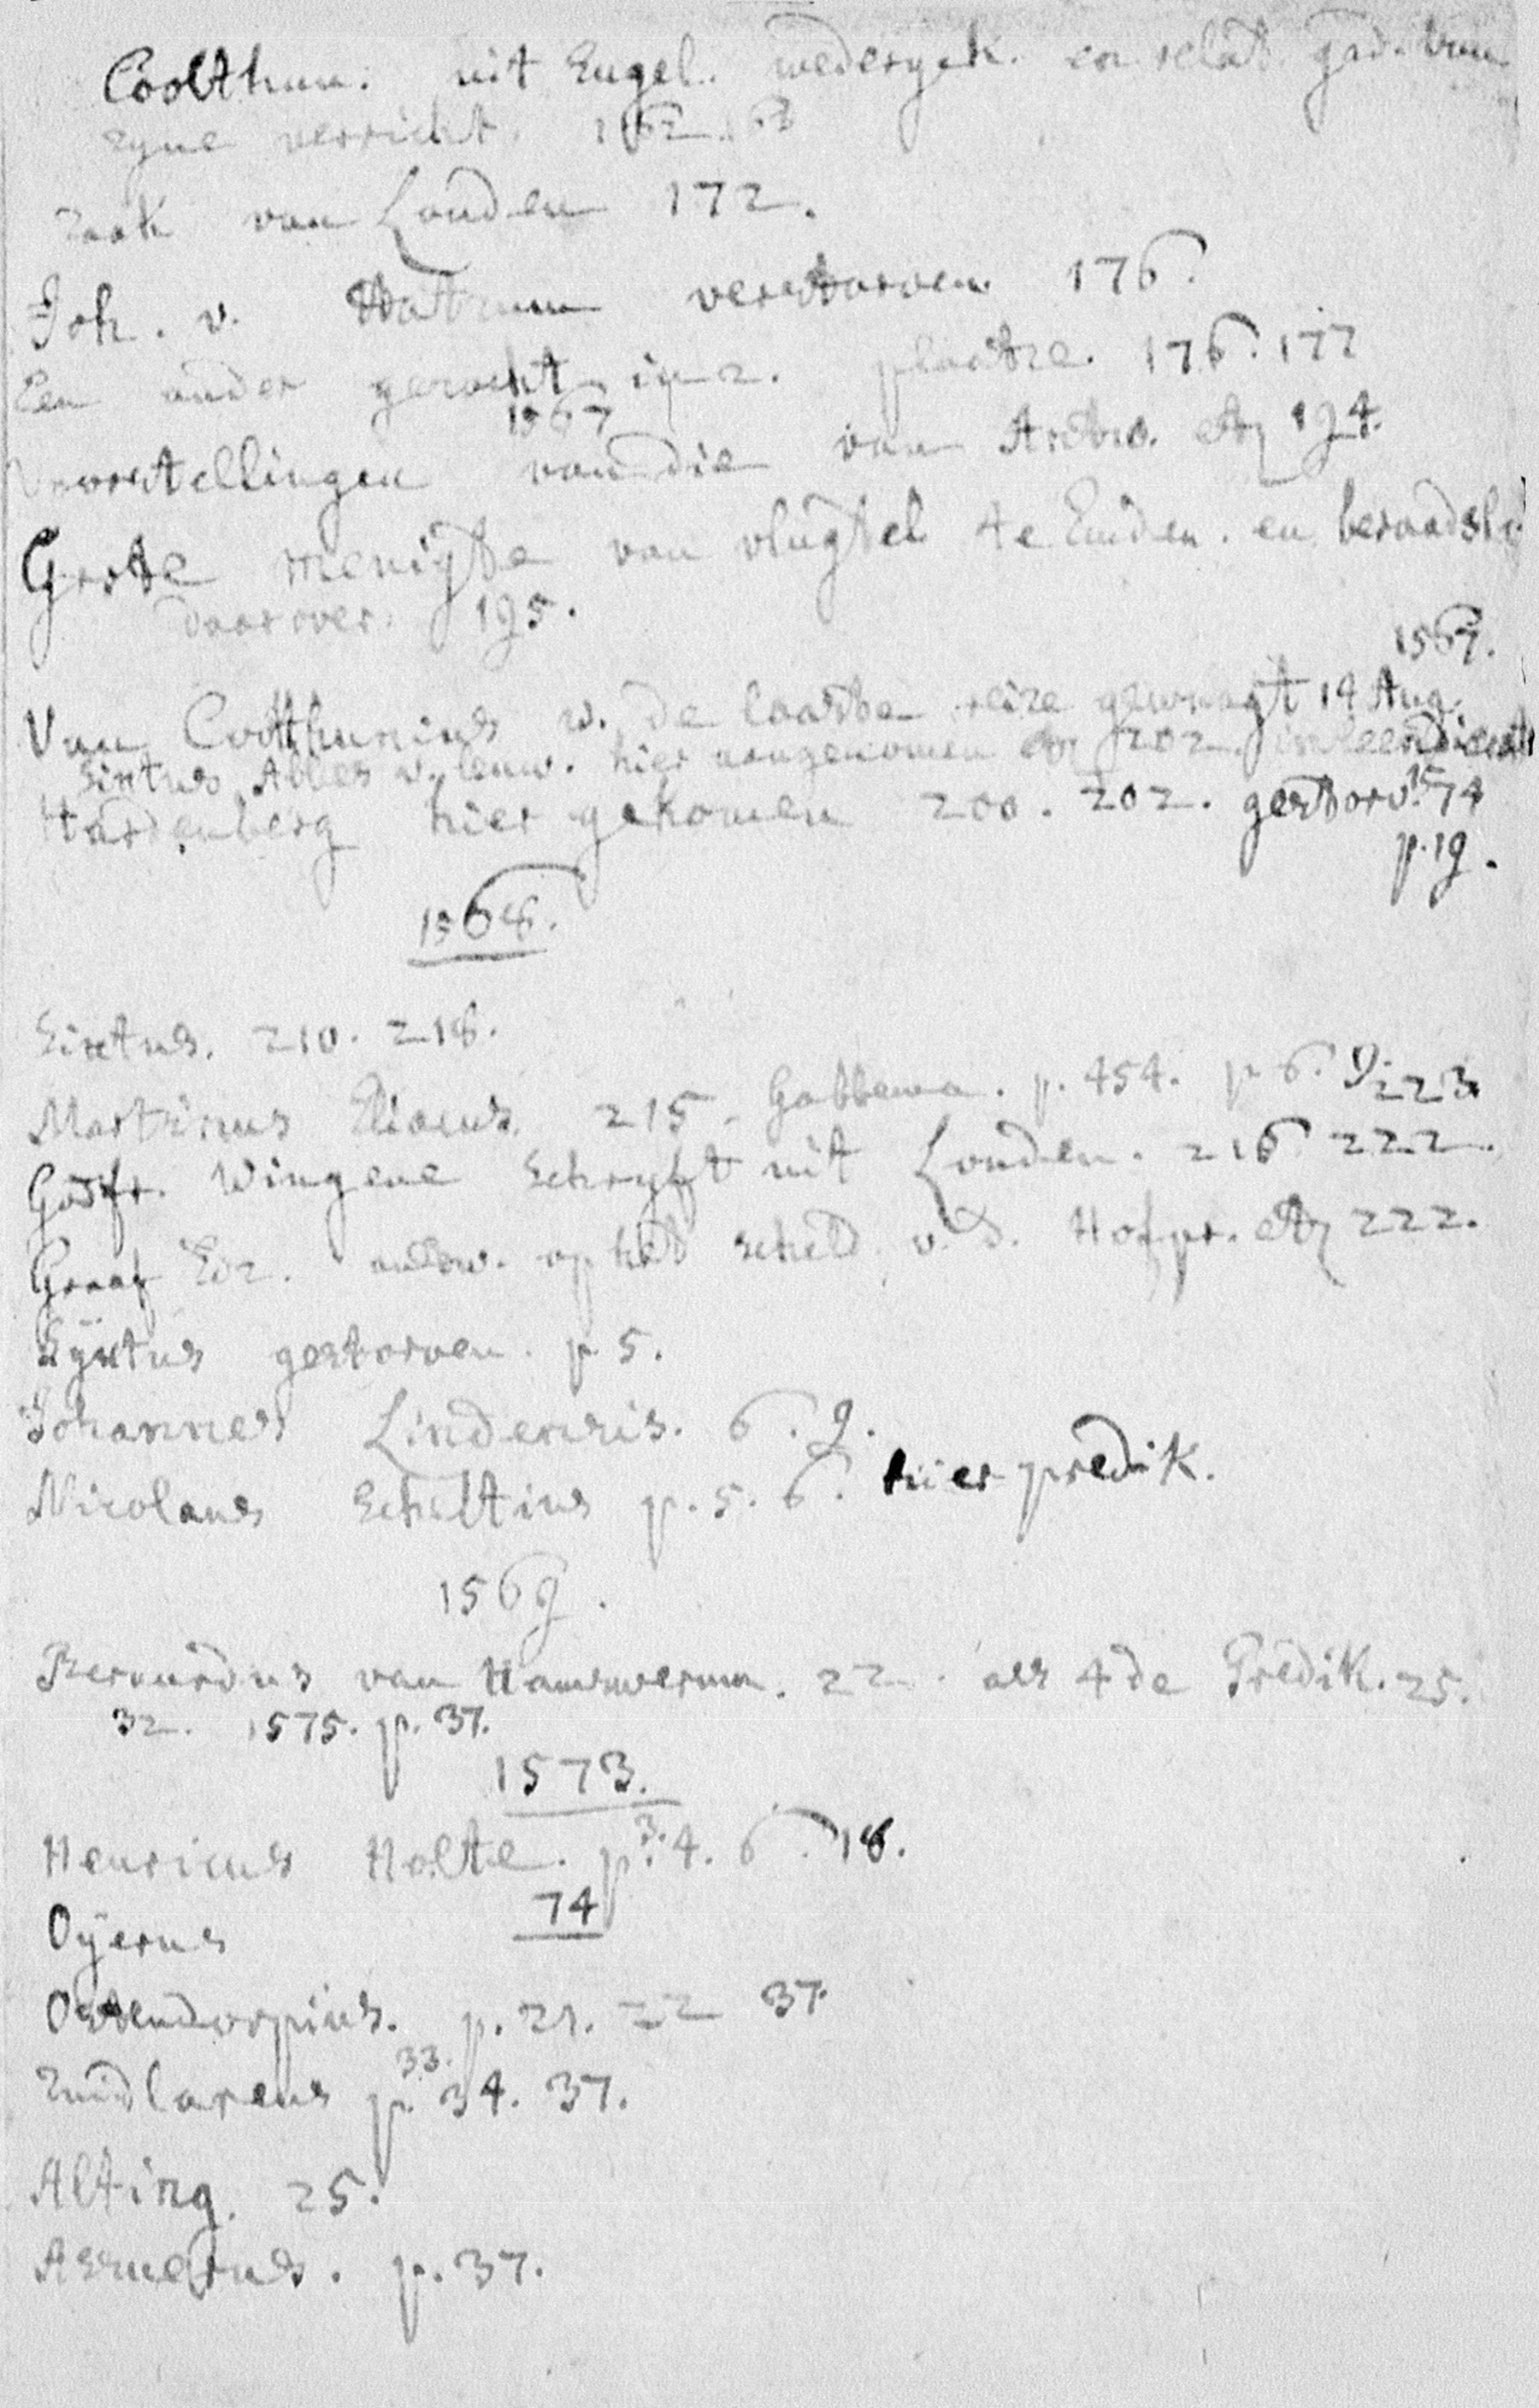 Coolthun. uit Engel. wedergek. en relat ged. van
zyne verricht. 162. 63
zaak van Londen 172.
Joh. v. verstorven 176.
Een ander gerocht in z. plaatze. 176. 177
1567
Voorstellingen van die van Antw. etz 194.
Grote menigte van vlugtel. te Emden. en beraadsl.
daarover. 195.
1567.
Van Coolthunius w. de laatste reize gewaagt 14 Aug.
Sixtus Abbes v. Leuw. hier aangenomen etz 202. in leendienst
Hardenberg hier gekomen 200. 202. gestorv. 1574
p. 19.
1568.
Sixtus. 210. 218.
Martinus Eliacus. 215. Gabbema. p. 454. p 6. 9. 223
Godfr. Wingene schryft uit Londen. 216 222.
Graaf Edz. antw. op het scheld. v. d. Hofpr. etz 222.
Syxtus gestorven. p 5.
Johannes Lindensis. 6. 9.
Nicolaus Scheltius p. 5. 6. hier predik.
1569.
Bernardus van Hauwerma. 22. als 4de Predik. 25.
32. 1575. p. 37.
1573.
Henricus Holte. p. 3. 4. 6. 18.
74
Oÿerus
Ostendorpius. p. 21. 22 37.
Zuidlarens p. 33. 34. 37.
Alting. 25.
Assuerus. p. 37.